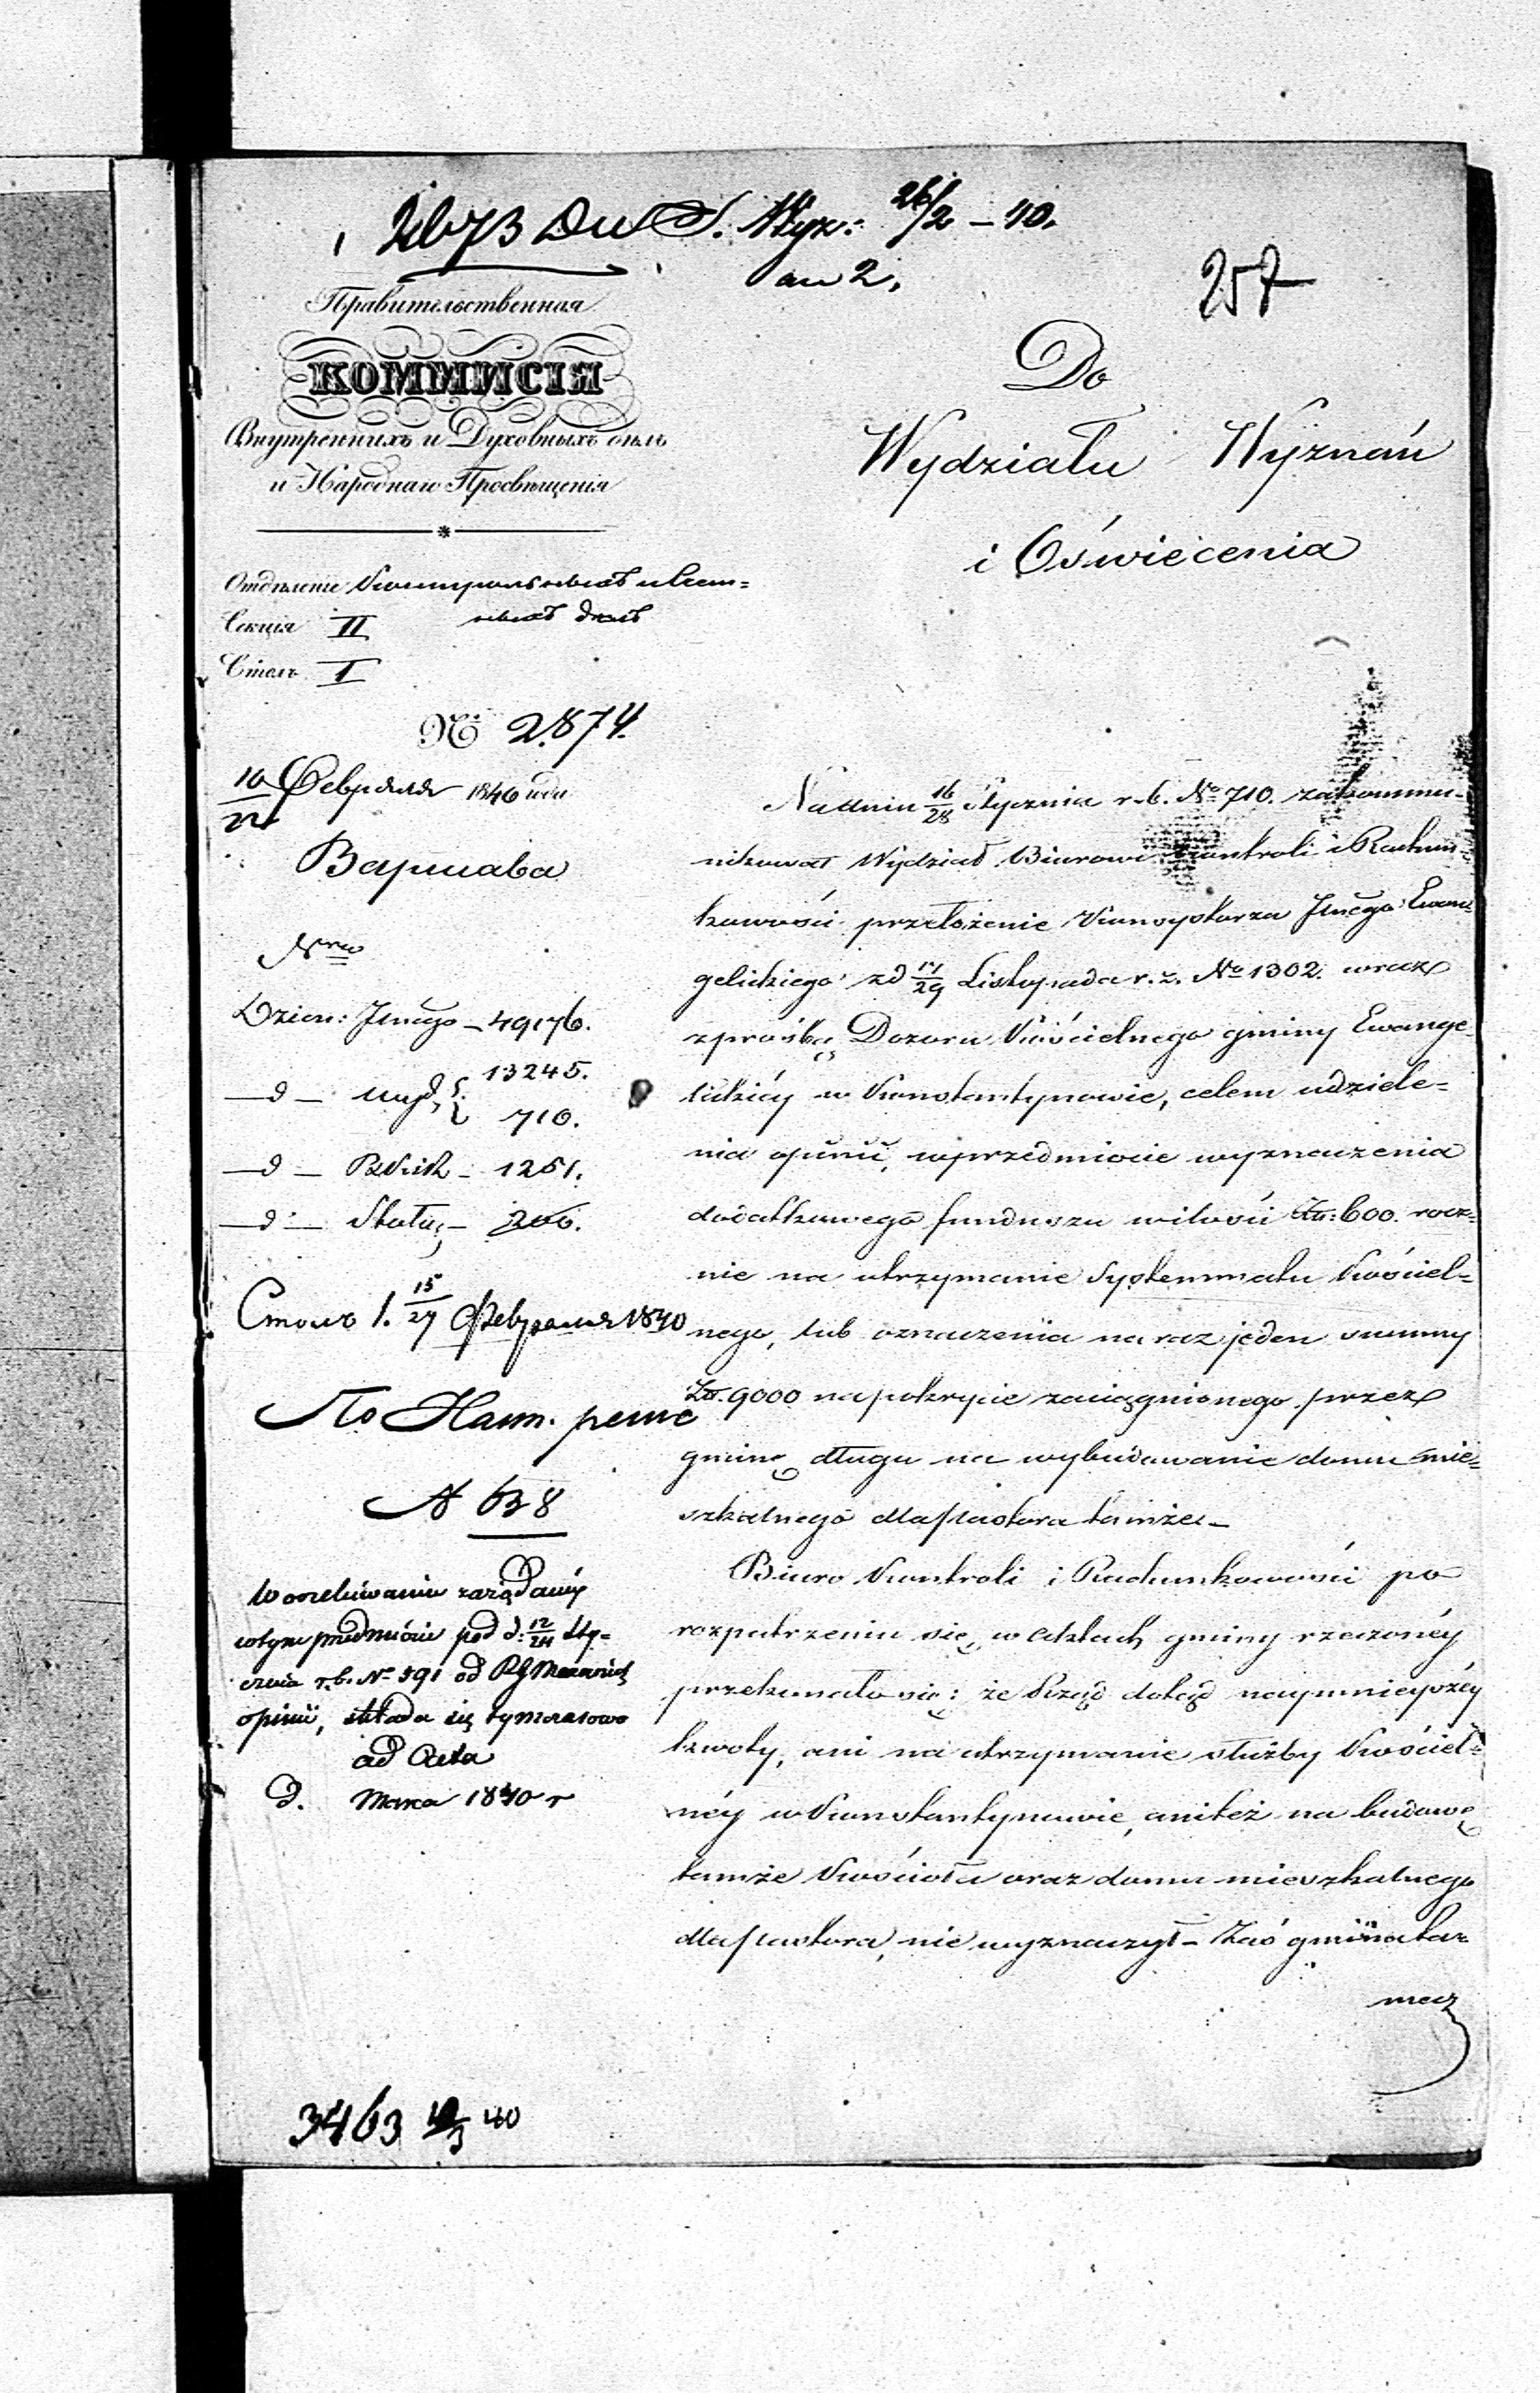 2673 DuS. Wyz: 26/2 – 40.
an 2.
257
Правительственная
КОММИСІЯ
Внутреннихъ и Духовныхъ дѣлъ
и Народнаго Просвѣщенія
Отдѣленіе Контрольныхъ и Счет=
ныхъ дѣлъ
Секція II
Столъ I
№ 2874.
10/22 Февраля 1840 года
Варшава
Nra
Dzien: Jnego – 49176.
–d– Wyd. 13245.
710.
–d– 1251.
–d– Stołu – 200.
Столъ 1. 15/27 Февраля 1840
По Наст. регис
№ 638
W oczekiwaniu zażądanéy
w tym przedmiocie pod d: 12/24 Sty=
cznia r.b. No 591 od RG Mazowieck
opinii, składa się tymczasowo
ad Acta
d. Marca 1840 r
3463 40
Do
Wydziału Wyznań
i Oświecenia
Na dniu 16/28 Stycznia r.b. No 710. zakommu=
nikował Wydział Biurowi Kontroli i Rachun=
kowości przełożenie Konsystorza Jnego Ewan=
gelickiego zd 17/29 Listopada r.z. No 1302. wraz
z prośbą Dozoru Kościelnego gminy Ewange=
lickiéy w Konstantynowie, celem udziele=
nia opinii, w przedmiocie wyznaczenia
dodatkowego funduszu w ilości Zł: 600. rocz=
nie na utrzymanie Systemmatu Kościel=
nego, lub oznaczenia na raz jeden summy
Zł. 9000 na pokrycie zaciągnionego przez
gminę długu na wybudowanie domu mie=
szkalnego dla Pastora tamże –
Biuro Kontroli i Rachunkowości po
rozpatrzeniu się w Aktach gminy rzeczonéy
przekonało się: że Rząd dotąd naymnieyszéy
kwoty, ani na utrzymanie służby Kościel=
néy w Konstantynowie, ani też na budowę
tamże Kościoła oraz domu mieszkalnego
dla Pastora, nie wyznaczył – Zaś gmina ta=